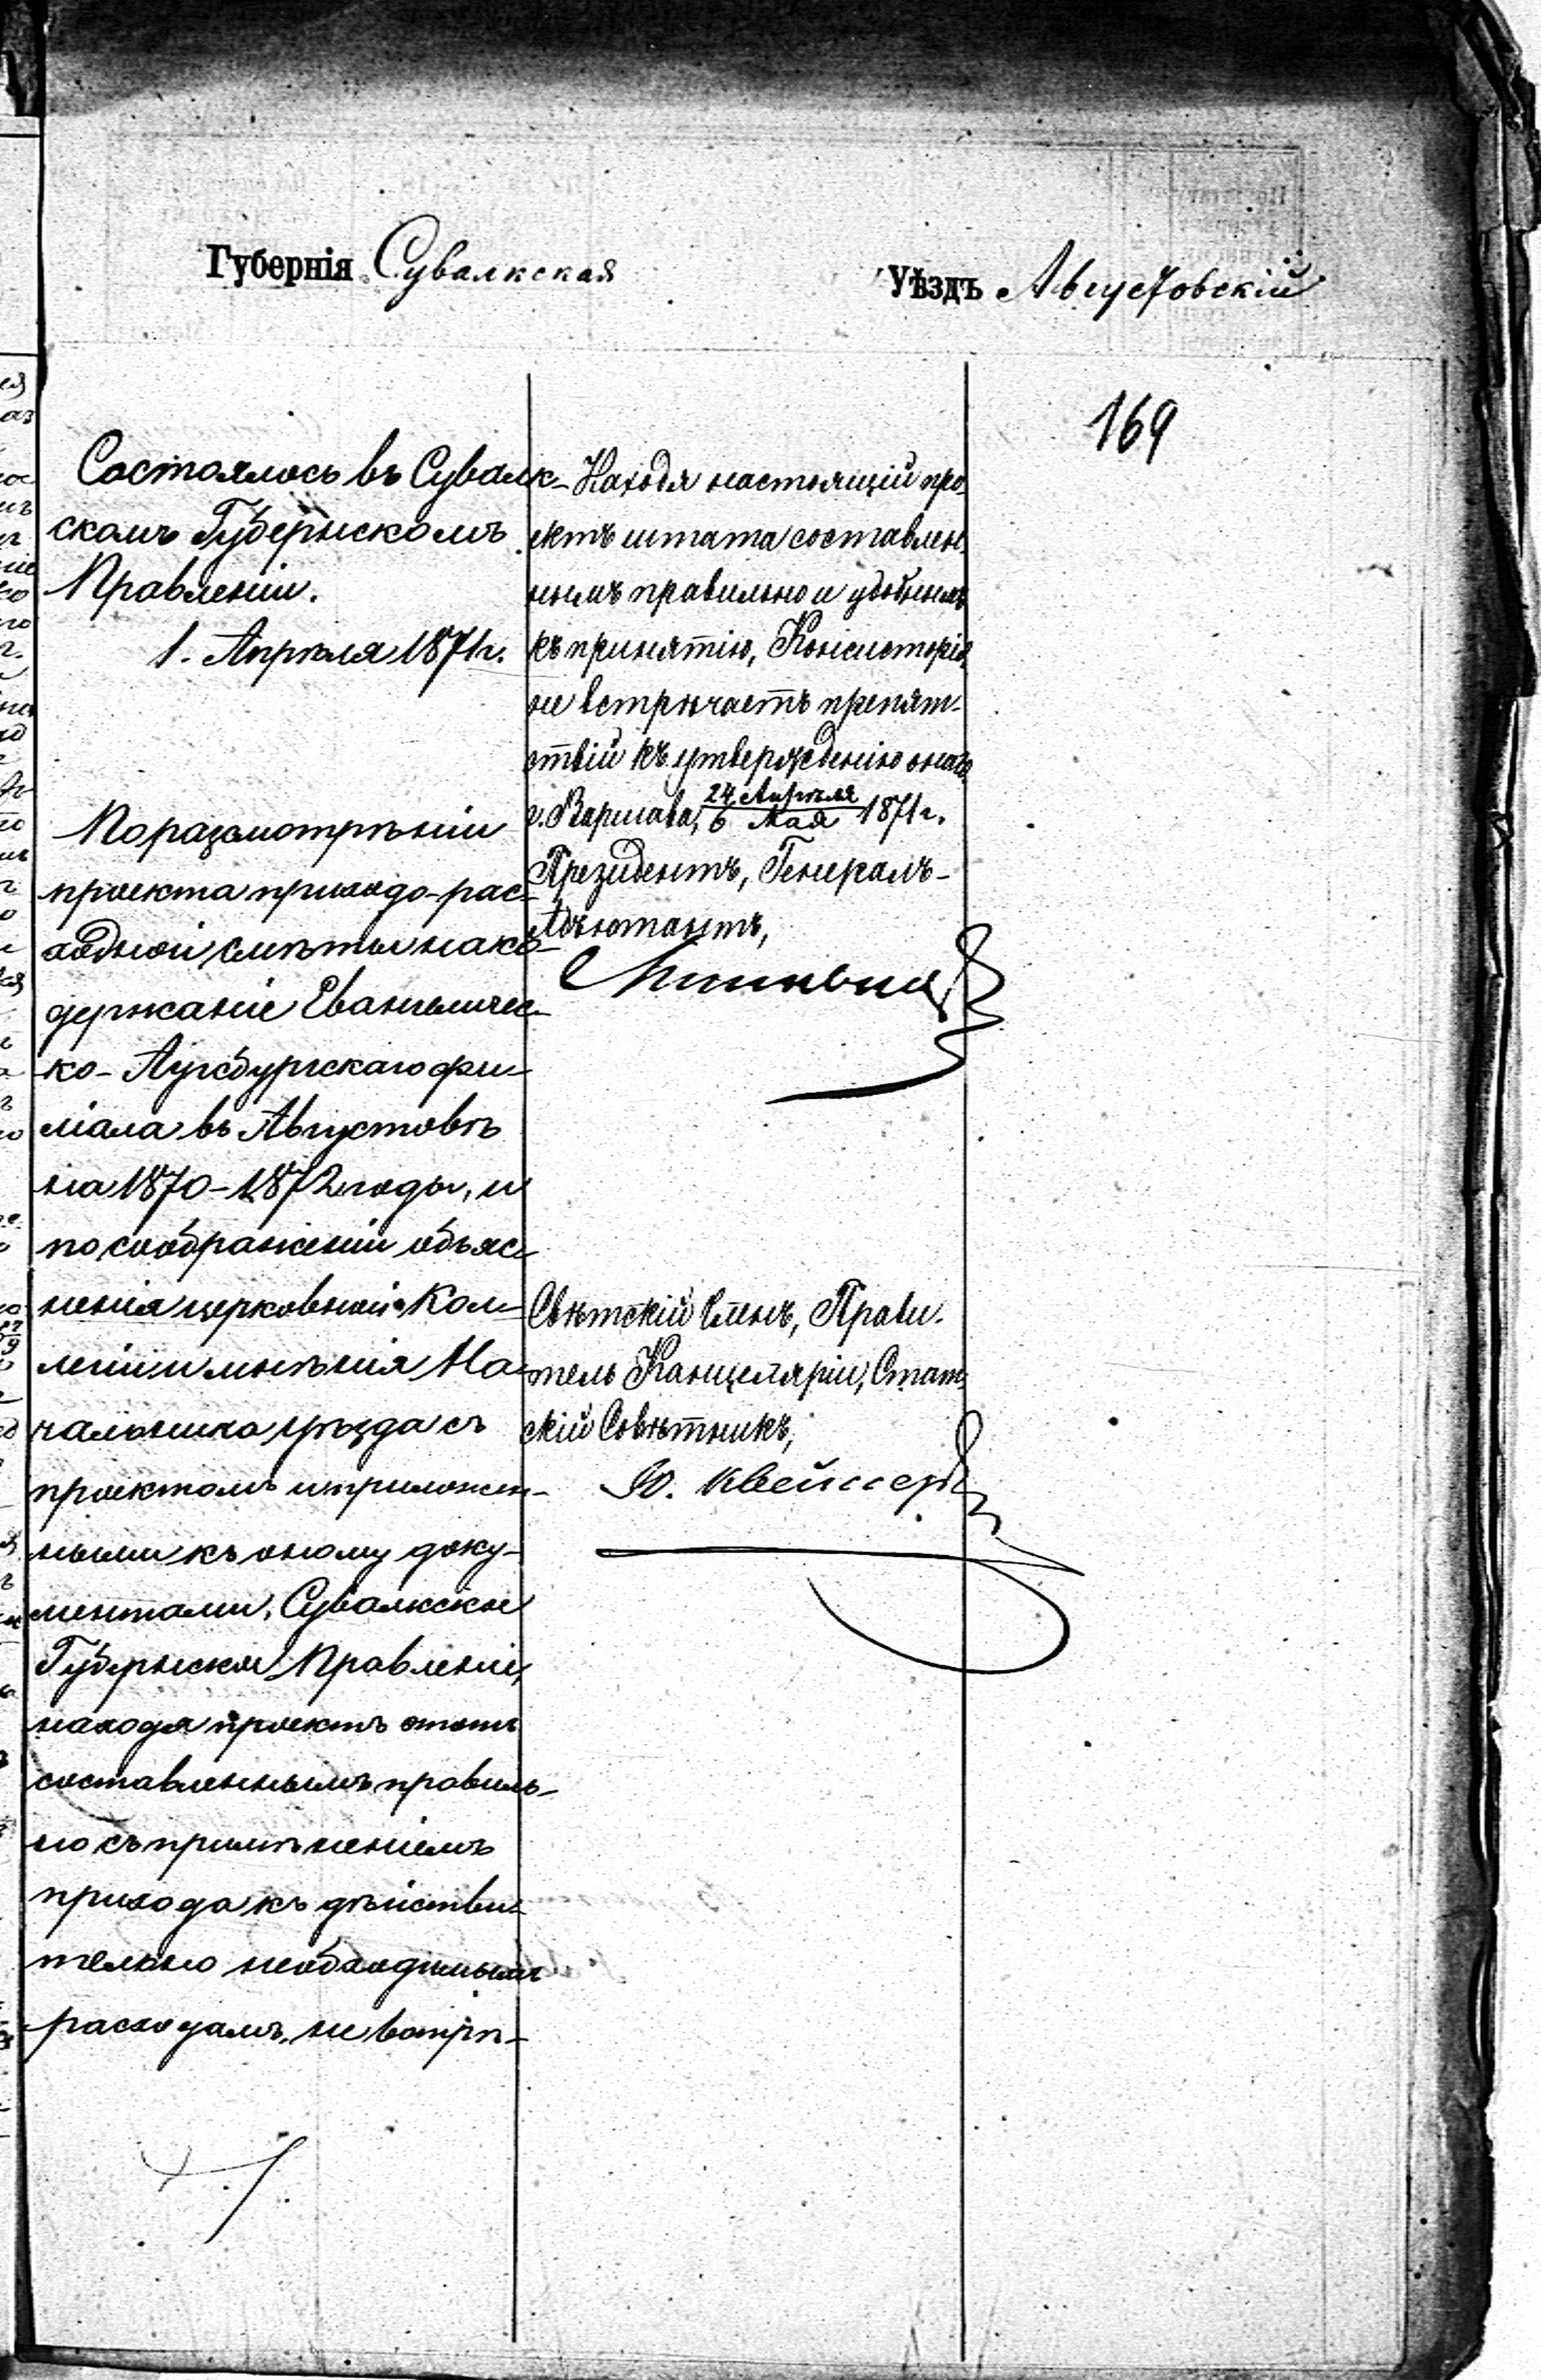 Губернія Сувалкская
Уѣздъ Августовскій
169
Состоялось въ Сувалк-
скомъ Губернскомъ
Правленіи.
1. Апрѣля 1871 г.
По разсмотрѣніи
проекта приходо-рас-
ходной смѣты на со-
держаніе Евангеличес-
ко-Аугсбургскаго фи-
ліала въ Августовѣ
на 1870-1872 годы, и
по соображеніи объяс-
ненія церковной Кол-
легіи и мнѣнія На-
чальника уѣзда съ
проектомъ и приложен-
ными къ оному доку-
ментами, Сувалкское
Губернское Правленіе,
находя проектъ этотъ
составленнымъ правиль-
но съ примѣненіемъ
прихода къ дѣйстви-
тельно необходимымъ
расходамъ, не встрѣ-
Находя настоящій про-
ектъ штата составлен-
нымъ правильно и удобнымъ
къ принятію, Консисторія
не встрѣчаетъ препят-
ствій къ утвержденію онаго.
г. Варшава, 24 Апрѣля / 6 Мая 1871 г.
Президентъ, Генералъ-
Адъютантъ,
Свѣтскій Членъ, Прави-
тель Канцеляріи, Стат-
скій Совѣтникъ,
Ю.